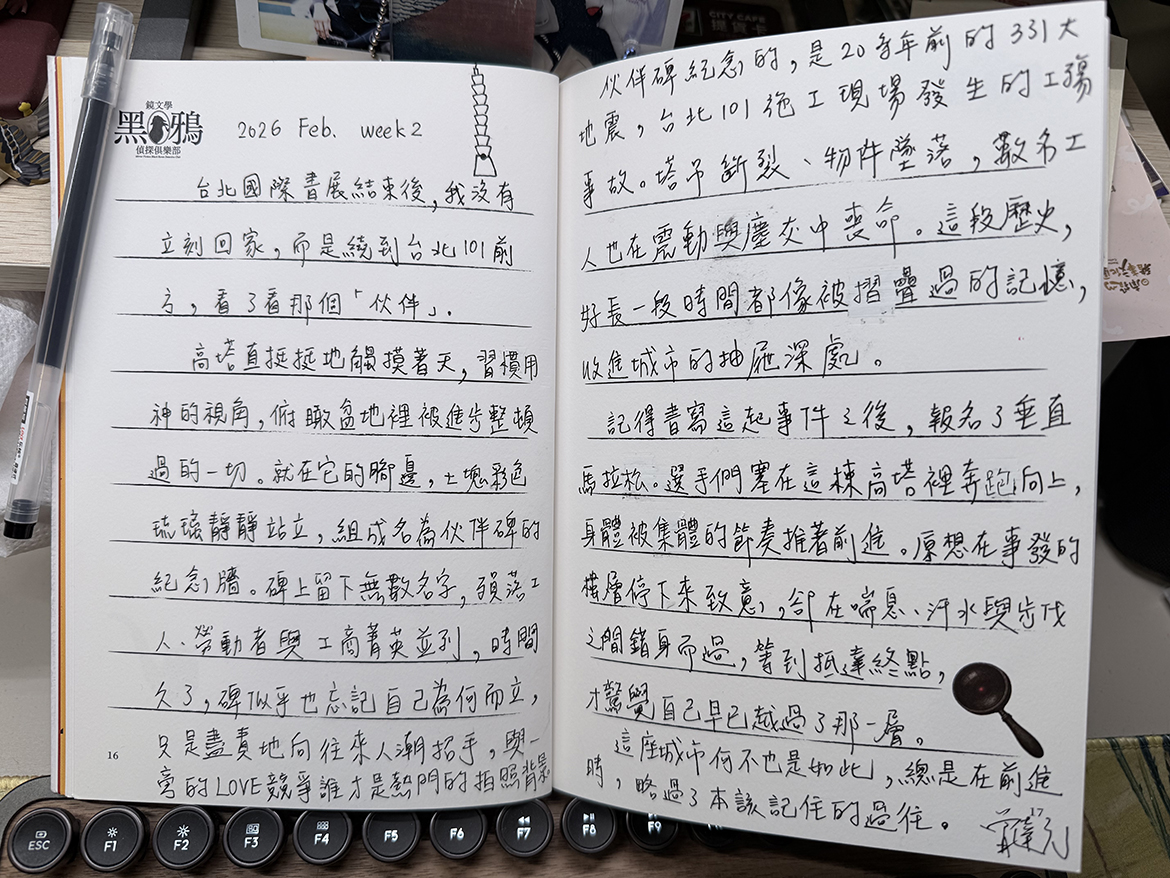 鏡文學
黑鴉
偵探俱樂部
2026 Feb. week 2
台北國際書展結束後，我沒有
立刻回家，而是繞到台北101前
方，看了看那個「伙伴」.
高塔直挺挺地觸摸著天，習慣用
神的視角，俯瞰盆地裡被進步整頓
過的一切。就在它的腳邊，七塊彩色
琉璃靜靜站立，組成名為伙伴碑的
紀念牆。碑上留下無數名字，殞落工
人、勞動者與工商菁英並列，時間
久了，碑似乎也忘記自己為何而立，
只是盡責地向往來人潮招手，與一
旁的LOVE競爭誰才是熱門的拍照背景
16
伙伴碑紀念的，是20多年前的331大
地震，台北101施工現場發生的工殤
事故。塔吊斷裂、物件墜落，數名工
人也在震動與塵灰中喪命。這段歷史，
好長一段時間都像被摺疊過的記憶，
收進城市的抽屜深處。
記得書寫這起事件之後，報名了垂直
馬拉松。選手們塞在這棟高塔裡奔跑向上，
身體被集體的節奏推著前進。原想在事發的
樓層停下來致意，卻在喘息、汗水與步伐
之間錯身而過，等到抵達終點，
才驚覺自己早已越過了那一層。
這座城市何不也是如此，總是在前進
時，略過了本該記住的過往。
ESC
F1
F2
F3
F4
F5
F6
F7
F8
F9
CITY CAFE